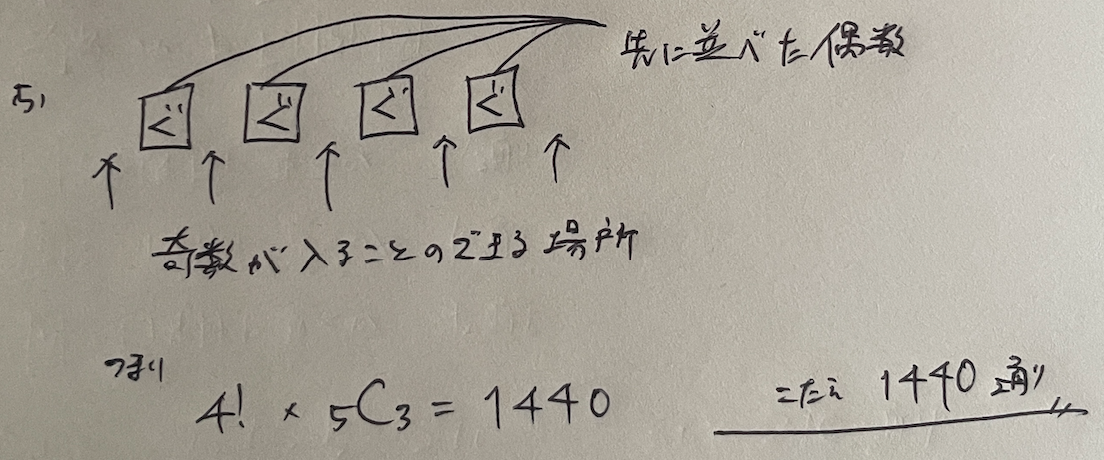 5)
先に並べた偶数
ぐ ぐ ぐ ぐ
奇数が入ることのできる場所
つまり
4! × ₅C₃ = 1440
こたえ 1440通り